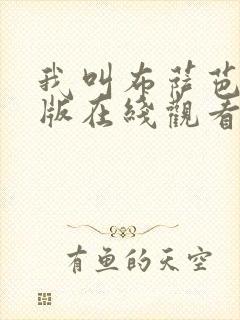 我叫布萨芭
版在线观看
有鱼的天空